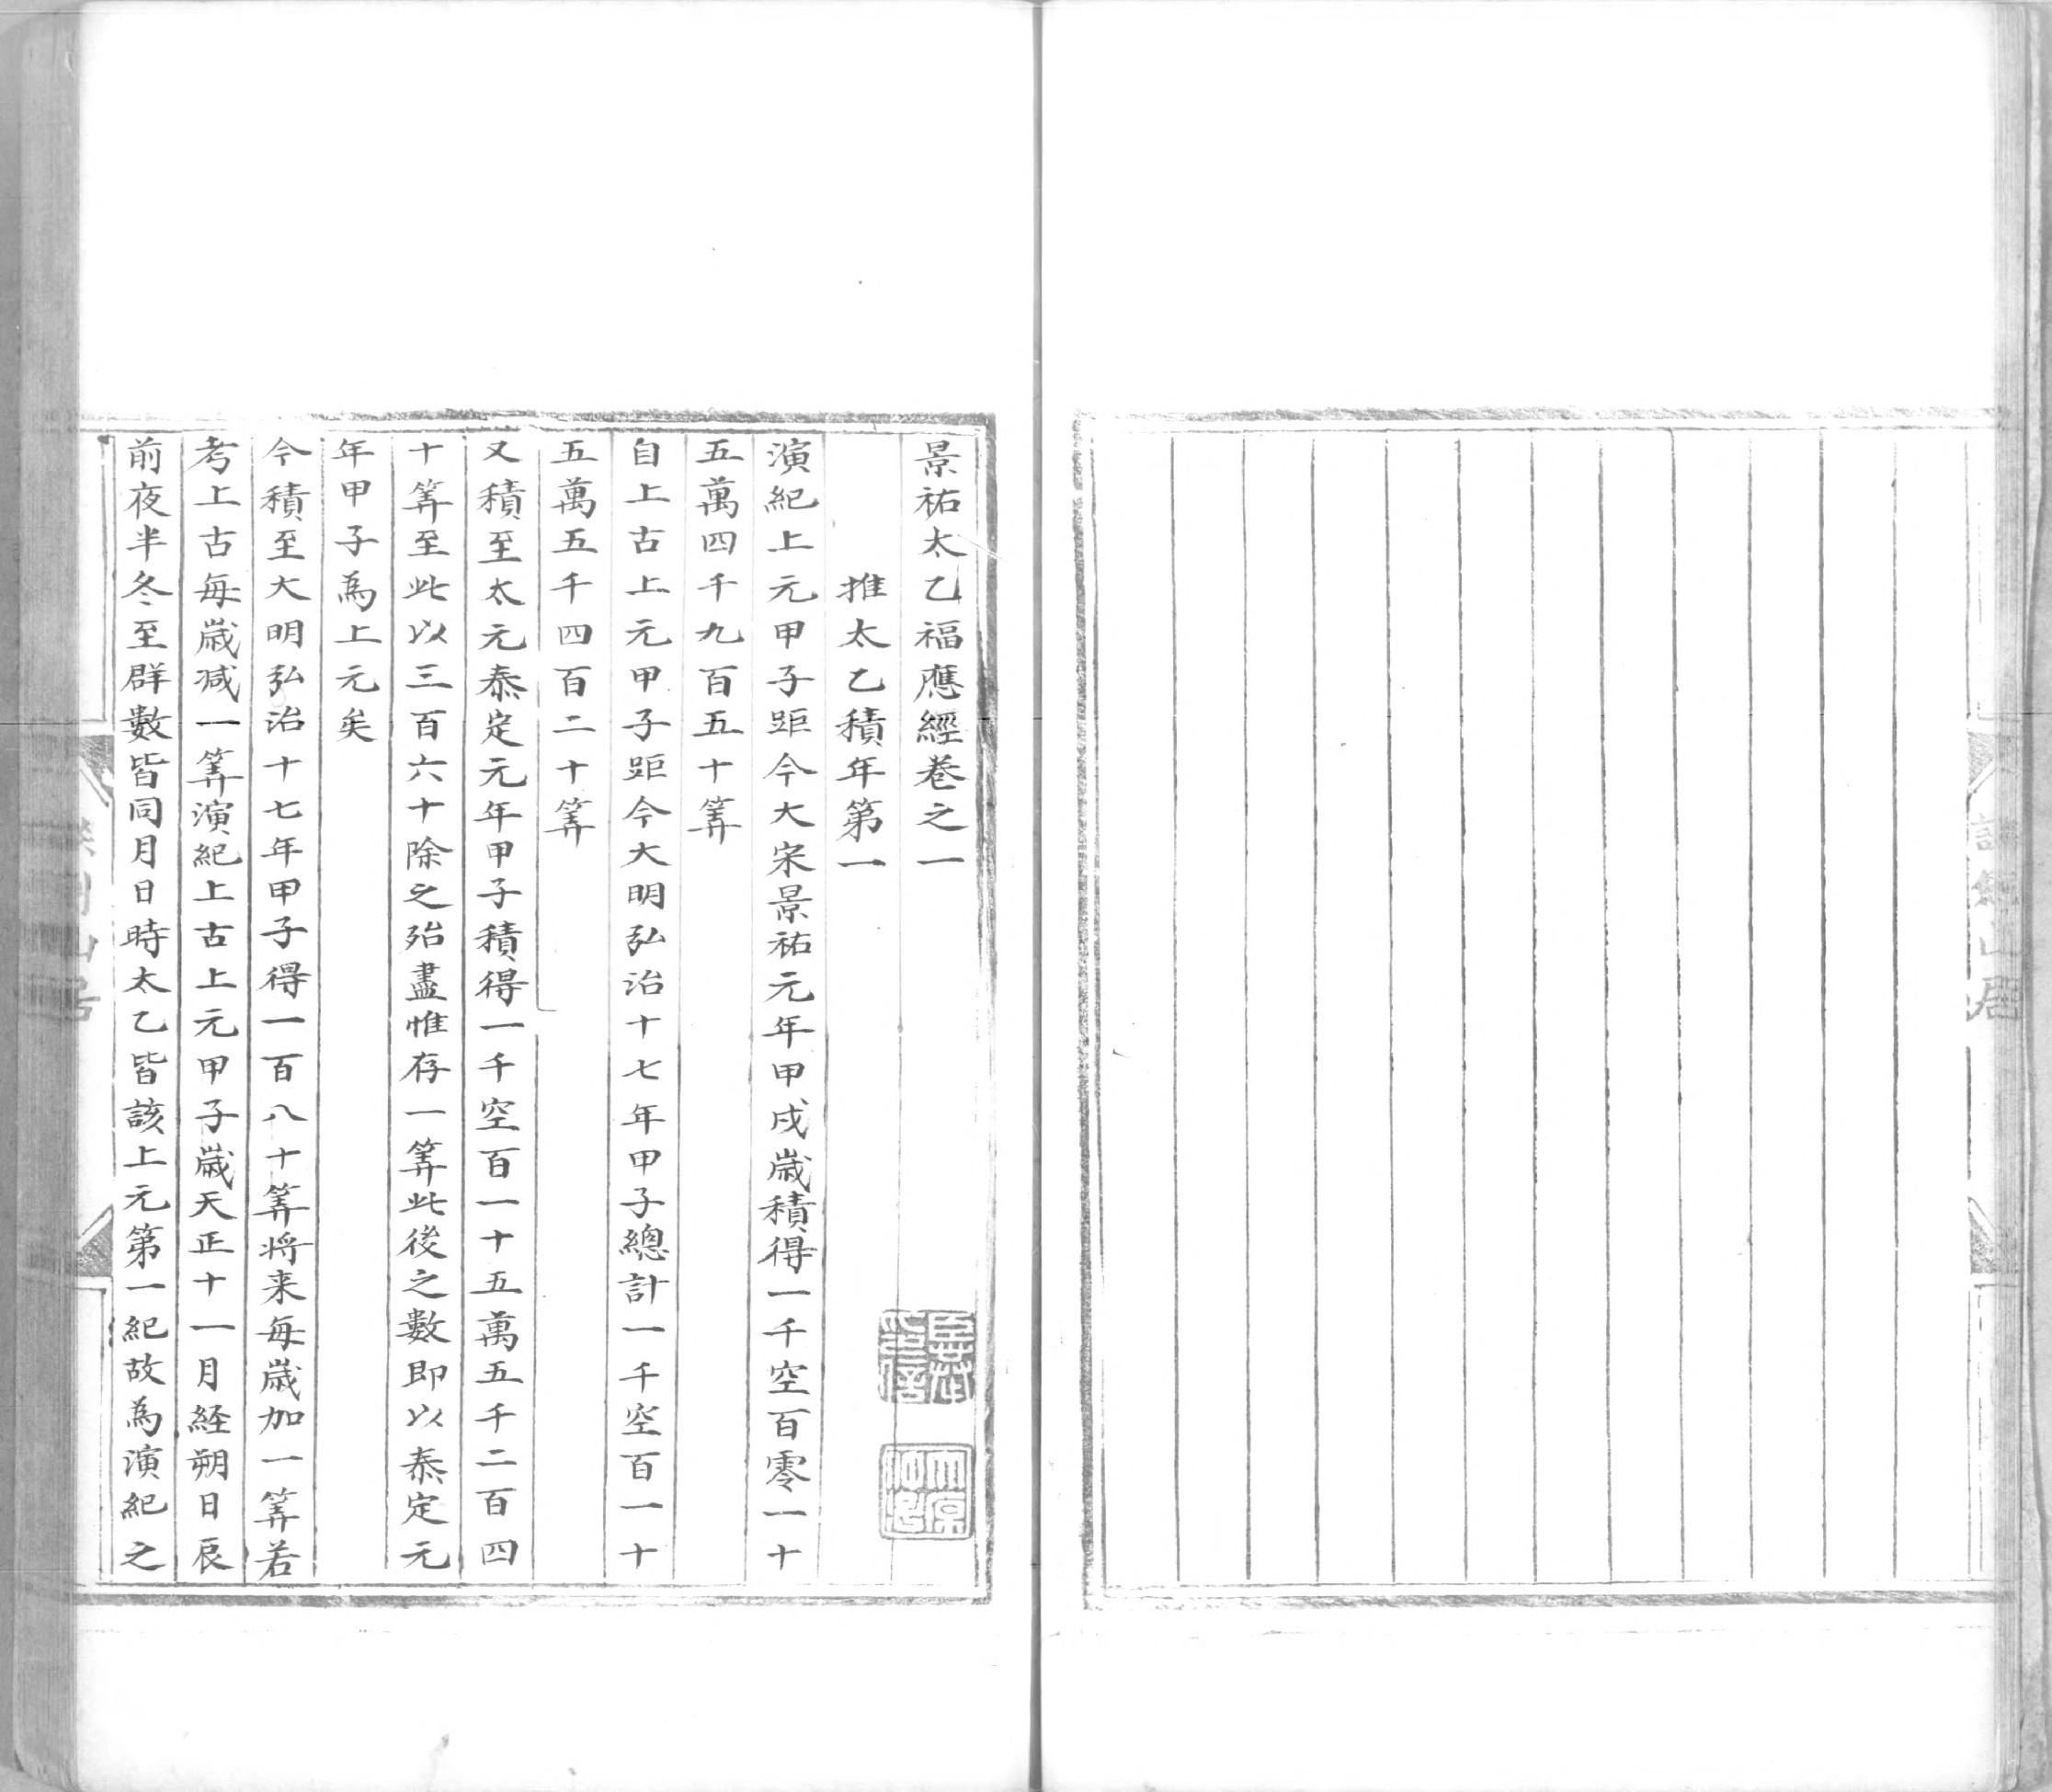 景祐太乙福應經卷之一
推太乙積年第一
演紀上元甲子距今大宋景祐元年甲戌歲積得一千空百零一十
五萬四千九百五十筭
自上古上元甲子距今大明弘治十七年甲子總計一千空百一十
五萬五千四百二十筭
又積至太元泰定元年甲子積得一千空百一十五萬五千二百四
十筭至此以三百六十除之殆盡惟存一筭此後之數即以泰定元
年甲子為上元矣
今積至大明弘治十七年甲子得一百八十筭将来每歲加一筭若
考上古每歲减一筭演紀上古上元甲子歲天正十一月経朔日辰
前夜半冬至群數皆同月日時太乙皆該上元第一紀故為演紀之